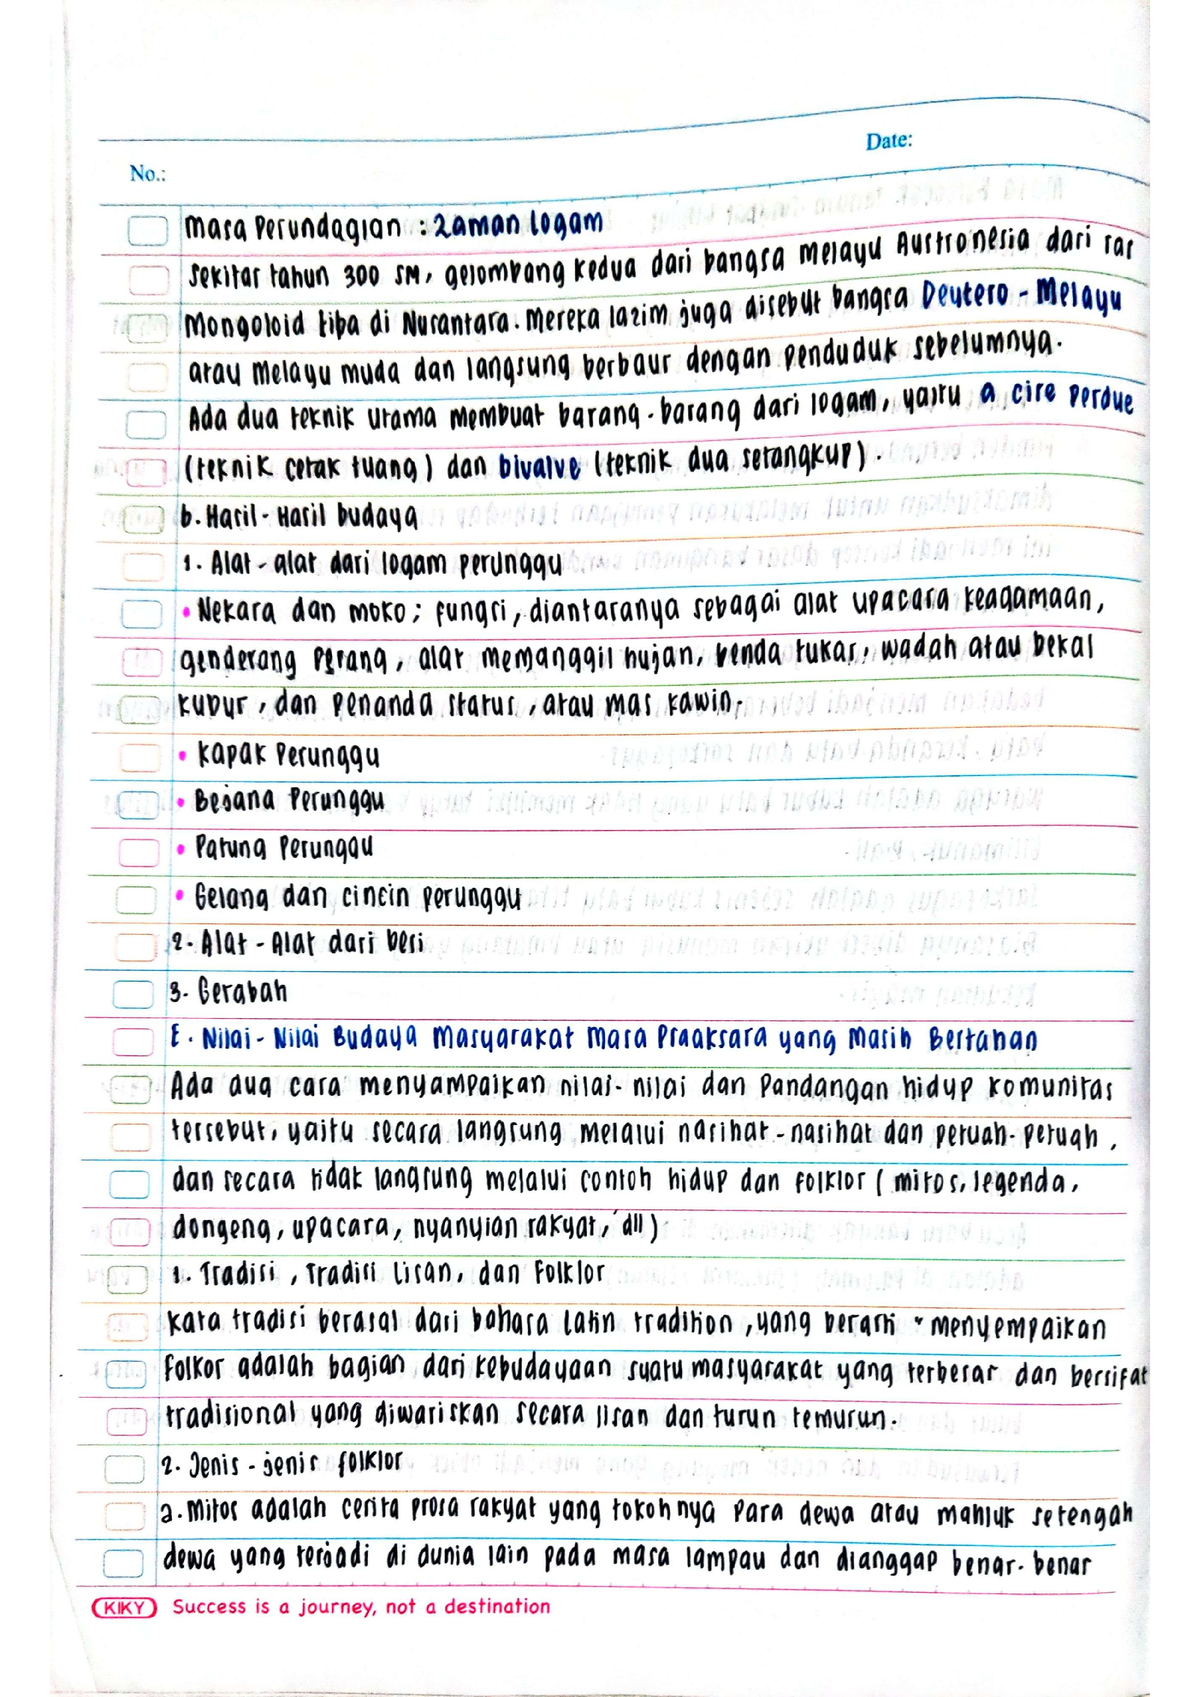 Date:
No.:
Masa Perundagian : Zaman Logam
Sekitar tahun 300 SM, gelombang kedua dari bangsa Melayu Austronesia dari ras
Mongoloid tiba di Nusantara. Mereka lazim juga disebut bangsa Deutero - Melayu
atau Melayu muda dan langsung berbaur dengan penduduk sebelumnya.
Ada dua teknik utama membuat barang-barang dari logam, yaitu a cire perdue
(teknik cetak tuang) dan bivalve (teknik dua setangkup).
b. Hasil - Hasil budaya
1. Alat - alat dari logam perunggu
• Nekara dan moko; fungsi, diantaranya sebagai alat upacara keagamaan,
genderang perang, alat memanggil hujan, benda tukar, wadah atau bekal
kubur, dan penanda status, atau mas kawin.
• Kapak Perunggu
• Bejana Perunggu
• Patung Perunggu
• Gelang dan cincin perunggu
2. Alat - Alat dari besi
3. Gerabah
E. Nilai - Nilai Budaya Masyarakat Masa Praaksara yang Masih Bertahan
Ada dua cara menyampaikan nilai-nilai dan Pandangan hidup komunitas
tersebut, yaitu secara langsung melalui nasihat-nasihat dan petuah-petuah,
dan secara tidak langsung melalui contoh hidup dan folklor ( mitos, legenda,
dongeng, upacara, nyanyian rakyat, dll)
1. Tradisi, Tradisi Lisan, dan Folklor
Kata tradisi berasal dari bahasa Latin tradition, yang berarti "menyempaikan
Folkor adalah bagian dari kebudayaan suatu masyarakat yang terbesar dan bersifat
tradisional yang diwariskan secara lisan dan turun temurun.
2. Jenis - jenis folklor
a. Mitos adalah cerita prosa rakyat yang tokohnya Para dewa atau mahluk setengah
dewa yang terjadi di dunia lain pada masa lampau dan dianggap benar-benar
KIKY Success is a journey, not a destination